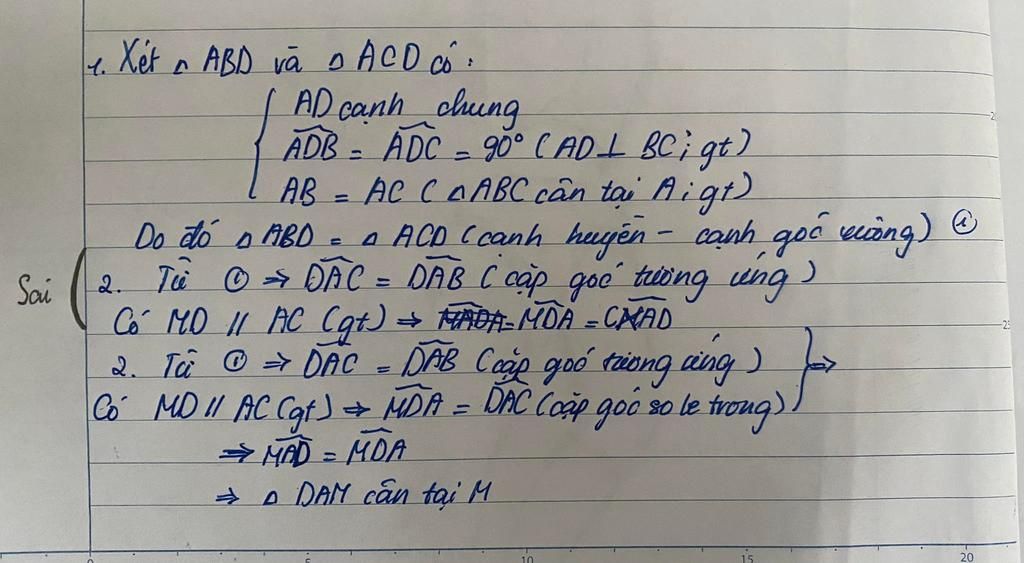 1. Xét △ ABD và △ ACD có:
AD cạnh chung
ADB = ADC = 90° (AD ⊥ BC; gt)
AB = AC (△ABC cân tại A; gt)
Do đó △ ABD = △ ACD (cạnh huyền - cạnh góc vuông) ①
Sai
2. Từ ① ⇒ DAC = DAB (cặp góc tương ứng)
Có MD // AC (gt) ⇒ MDA = CMAD
2. Từ ① ⇒ DAC = DAB (cặp góc tương ứng) } ⇒
Có MD // AC (gt) ⇒ MDA = DAC (cặp góc so le trong)
⇒ MAD = MDA
⇒ △ DAM cân tại M
5 10 15 20